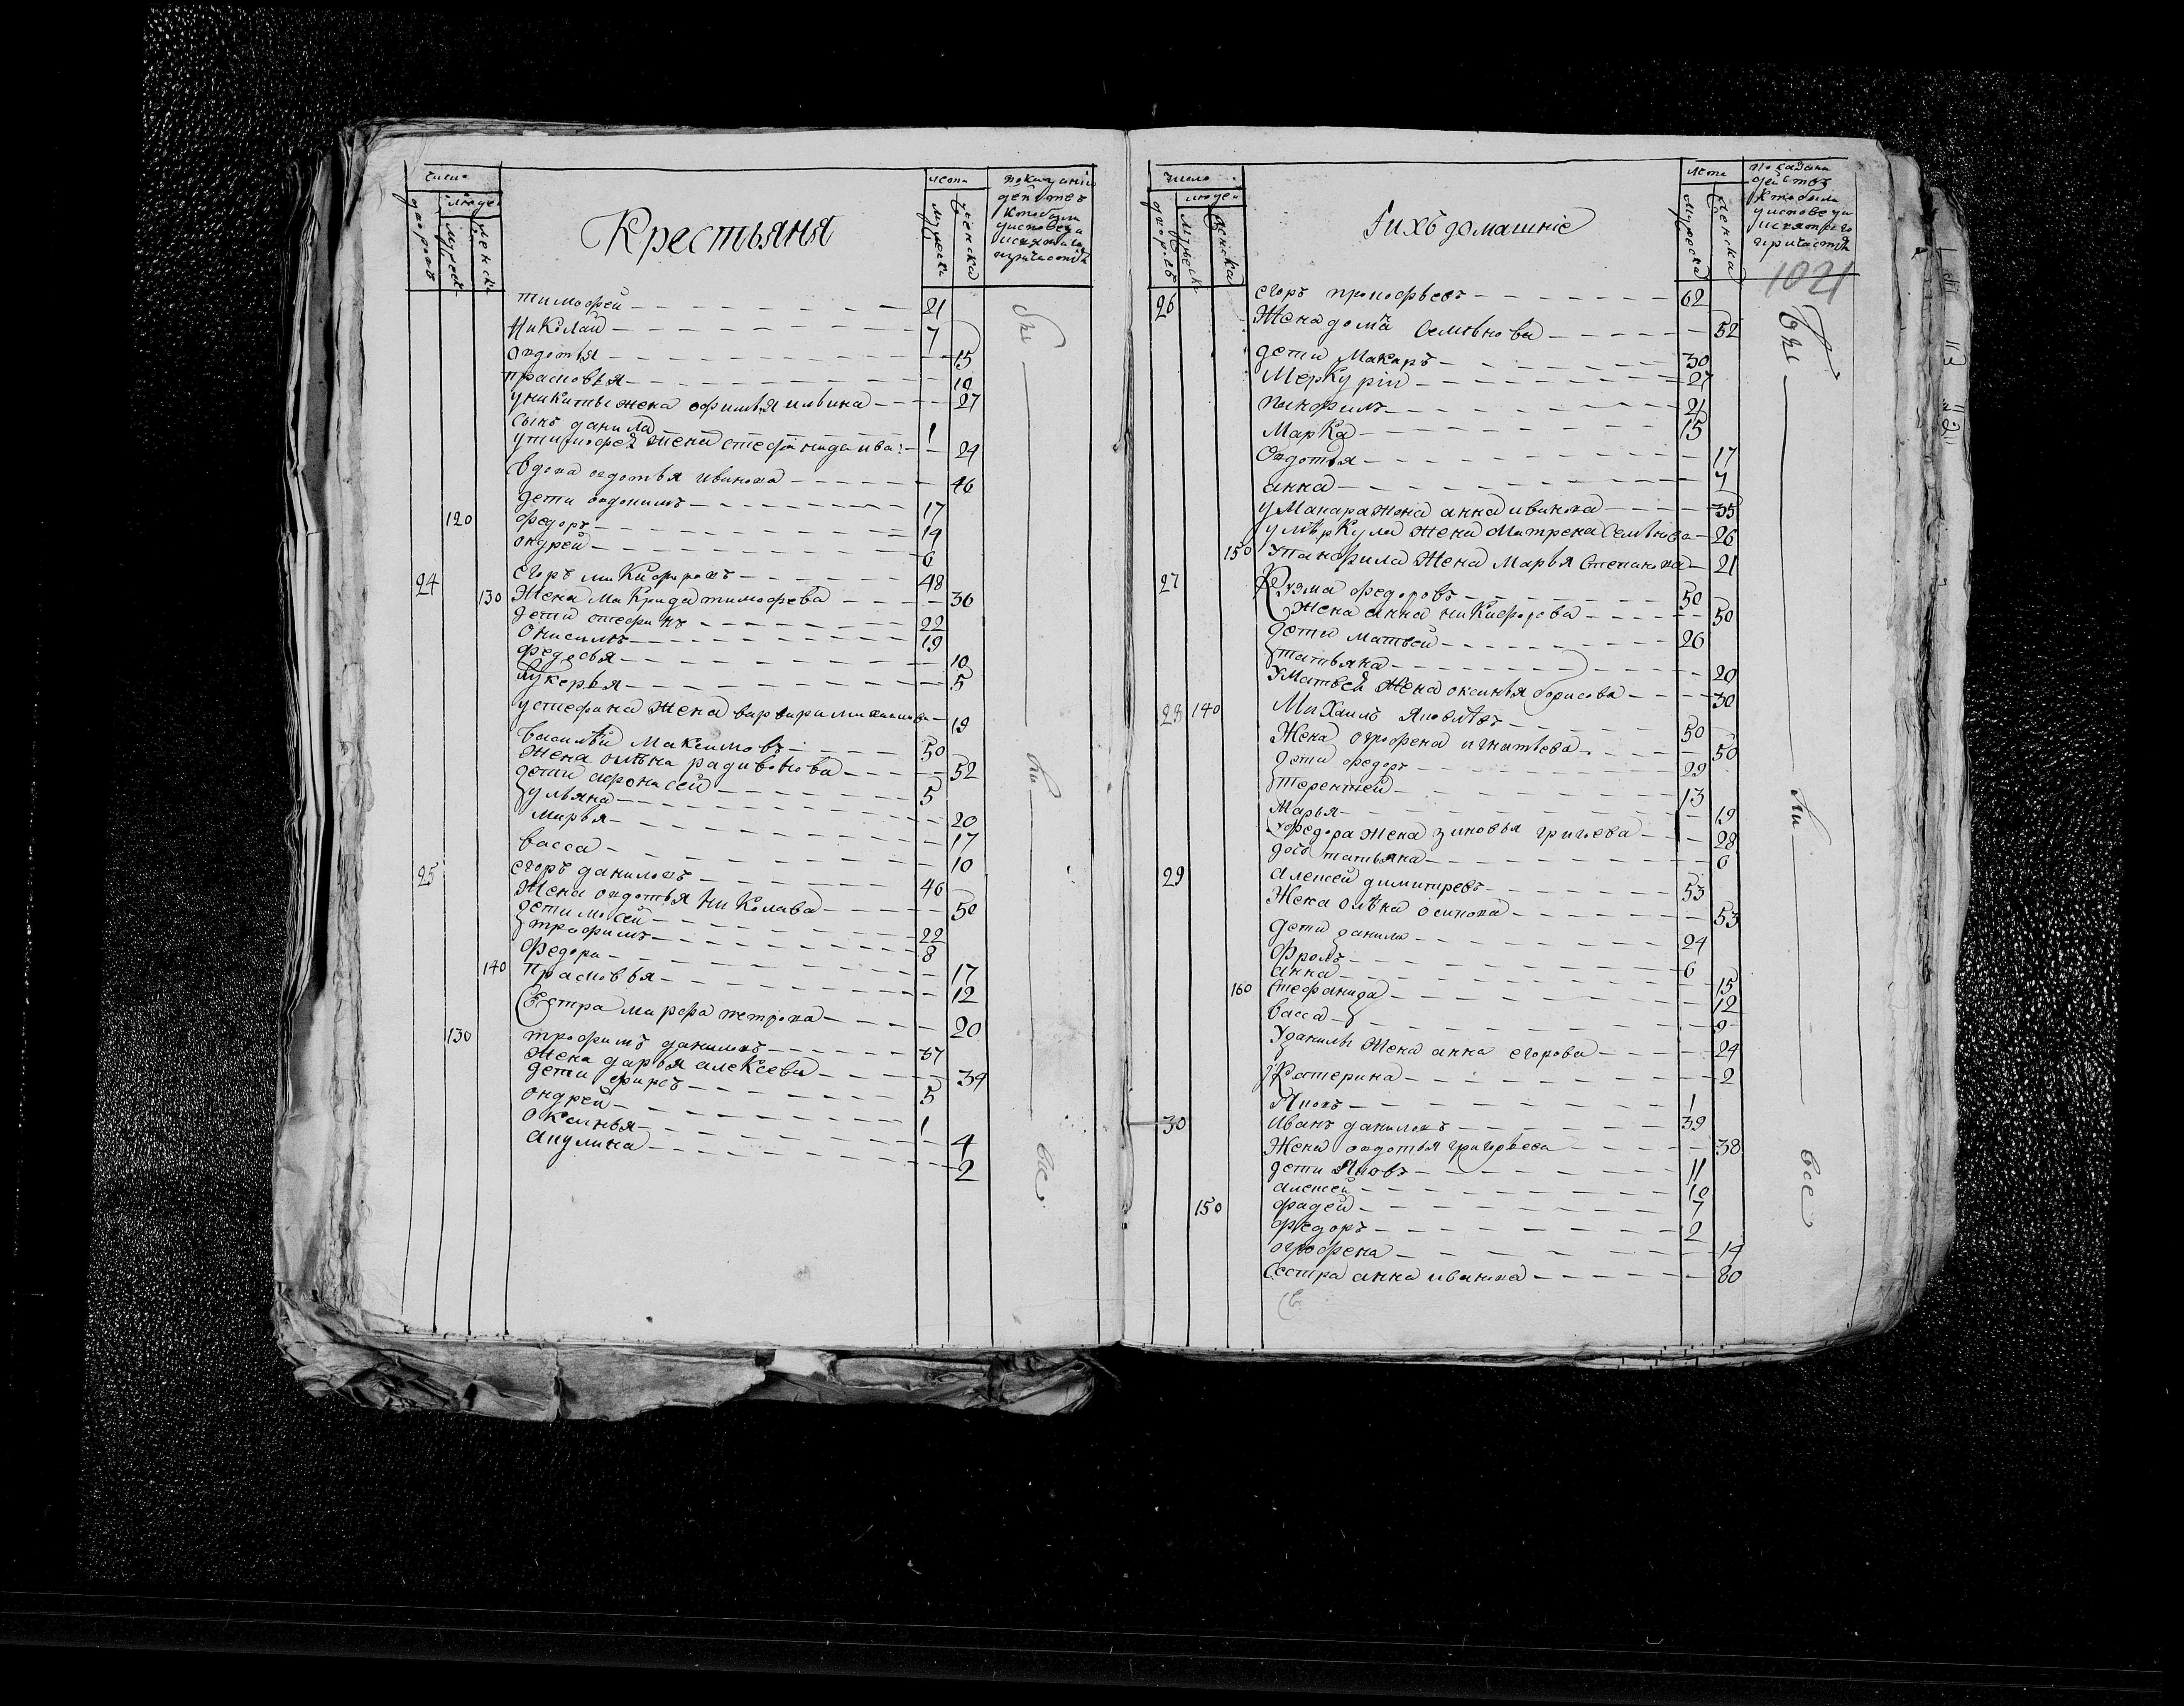 число
дворовъ
людей
мужеска
женска
Крестьяня
лета
мужеска
женска
показаніе
действъ
кто были
у исповеди
и святаго
причастія
тимофей 21
Николай 7
овдотья 15
прасковья 19
у никиты жена офимья ильина 27
сынъ данила 1
у тимофея жена стефанида ива: 24
вдова овдотья иванова 46
дети 17
120 федоръ 14
ондрей 6
24 егоръ никифоровъ 48
130 Жена Макрида тимофева 36
дети стефанъ 22
Онисимъ 19
федосья 10
лукерья 5
у стефана жена варвара михаилова 19
василей Максимовъ 50
Жена олѣна радивонова 52
дети афонасей 5
ульяна 20
марья 17
васса 10
25 егоръ даниловъ 46
Жена овдотья Николава 50
дети мосей 22
трофимъ 8
Федора 17
140 прасковья 12
Сестра марфа петрова 20
130 трофимъ даниловъ 37
Жена дарья алексева 34
дети фирсъ 5
ондрей 1
оксинья 4
акулина 2
бы
ли
все
число
дворовъ
людей
мужеска
женска
И ихъ домашніе
лета
мужеска
женска
показание
действъ
кто были
у исповеди
и святаго
причастія
1021
26 егоръ прокофьевъ 62
Жена домна Семѣнова 52
дети Макаръ 30
Меркурій 27
панфилъ 21
Марка 15
Овдотья 17
анна 7
у Макара Жена анна иванова 35
у мѣркула Жена Матрена Семѣнова 26
150 У панфила Жена Марья Степанова 21
27 Кузма федоровъ 50
Жена анна никифорова 50
дети матвей 26
татьяна 20
У Матвея Жена оксинья борисова 30
28 140 Михаилъ Яковлевъ 50
Жена огрофена игнатьева 50
дети федоръ 29
терентей 13
Марья 19
у федора жена зиновья григоева 28
дочь татьяна 6
29 алексей димитревъ 53
Жена олѣна осипова 53
дети данила 24
Фролъ 6
анна 15
160 Стефанида 12
васса 9
У данилы Жена анна егорова 24
Катерина 2
Яковъ 1
30 Иванъ даниловъ 39
Жена овдотья григорьева 38
дети Яковъ 11
алексей 10
150 фадей 7
федоръ 2
огрофена 14
Сестра анна иванова 80
бы
ли
все